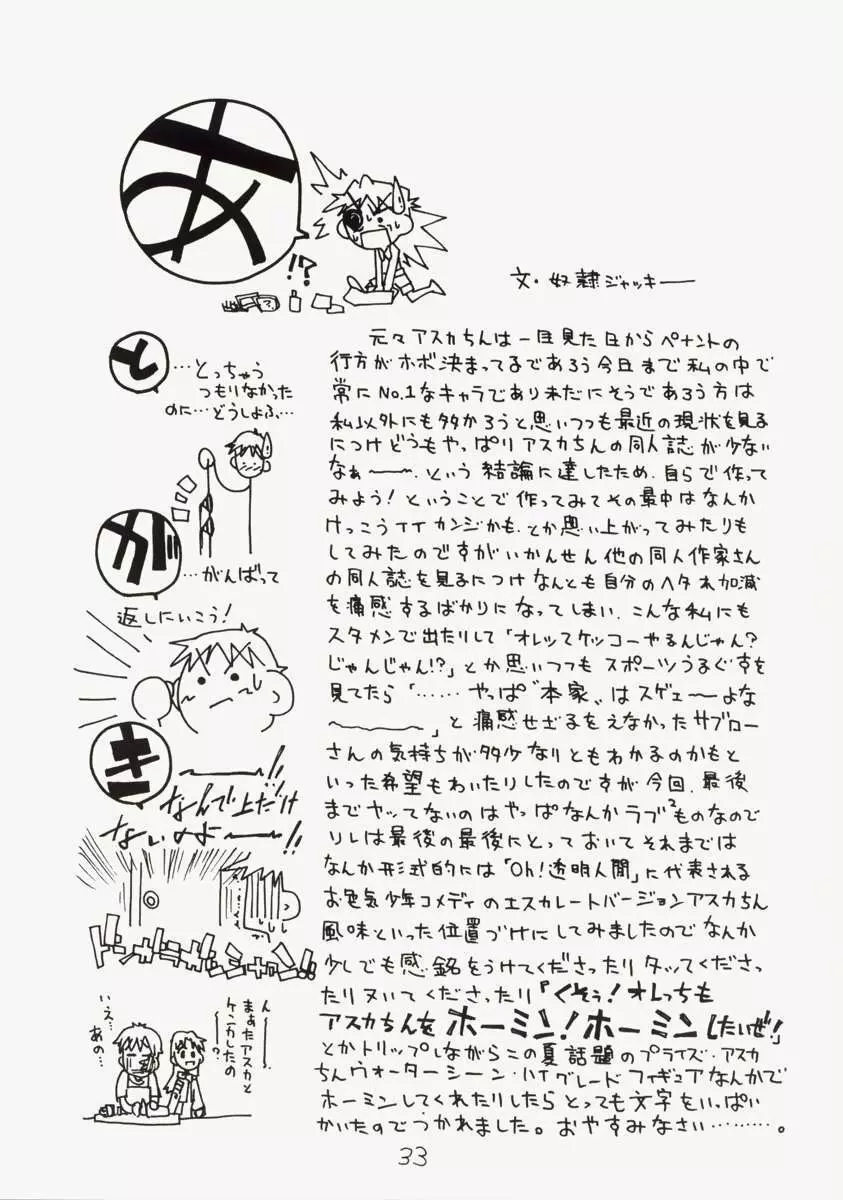 あ
!?
文・奴隷ジャッキー
と
…とっちゃう
つもりなかった
のに…どうしよふ…
が
…がんばって
返しにいこう!
き
なんで上だけ
ないのよ〜〜!!
ん〜〜
まぁたアスカと
ケンカしたの
〜〜?
いえ、
あの…
元々アスカちんは一目見た日からペナントの
行方がホボ決まってるであろう今日まで私の中で
常にNo.1なキャラであり未だにそうであろう方は
私以外にも多かろうと思いつつも最近の現状を見る
につけどうもやっぱりアスカちんの同人誌が少ない
なぁ〜〜、という結論に達したため、自らで作って
みよう!ということで作ってみてその最中はなんか
けっこうイイカンジかも、とか思い上がってみたりも
してみたのですがいかんせん他の同人作家さん
の同人誌を見るにつけなんとも自分のヘタれ加減
を痛感するばかりになってしまい、こんな私にも
スタメンで出たりして「オレッてケッコーやるんじゃん?
じゃんじゃん!?」とか思いつつもスポーツうるぐすを
見てたら「……やっぱ〝本家〟はスゲェ〜よな
〜〜〜〜」と痛感せざるをえなかったサブロー
さんの気持ちが多少なりともわかるのかもと
いった希望もわいたりしたのですが今回、最後
までヤッてないのはやっぱなんかラブ²ものなので
ソレは最後の最後にとっておいてそれまでは
なんか形式的には「Oh!透明人間」に代表される
お色気少年コメディのエスカレートバージョンアスカちん
風味といった位置づけにしてみましたのでなんか
少しでも感銘をうけてくださったりタッてくださっ
たりヌいてくださったり『くそぅ!オレっちも
アスカちんをホーミン!ホーミンしたいぜ!』
とかトリップしながらこの夏話題のプライズ・アスカ
ちんウォーターシーン・ハイグレードフィギュアなんかで
ホーミンしてくれたりしたらとっても文字をいっぱい
かいたのでつかれました。おやすみなさい………。
33